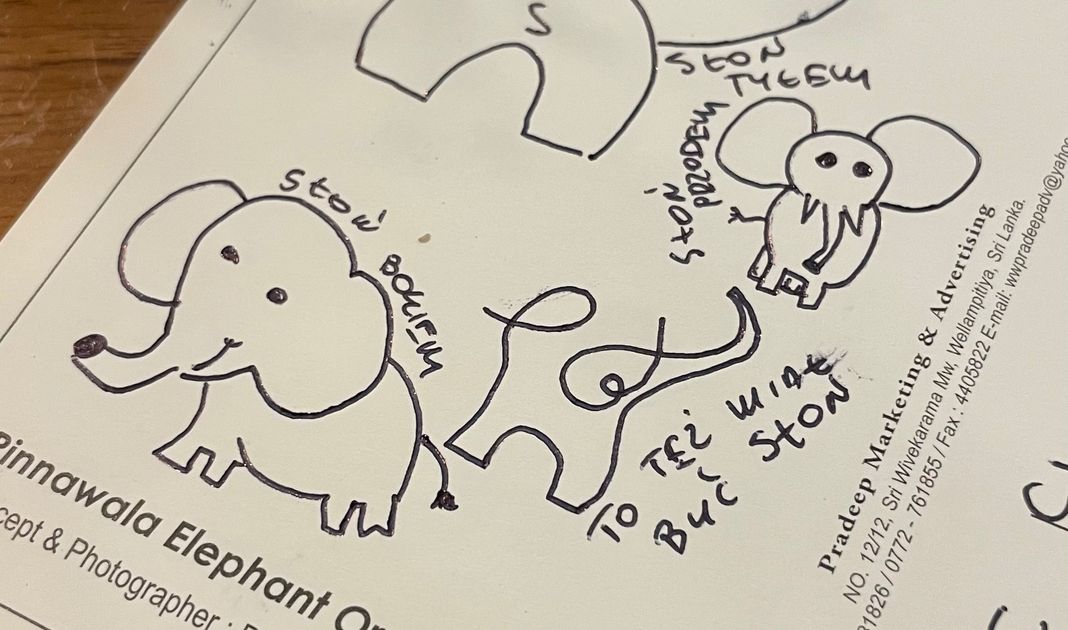 S
SŁOŃ
TYŁEM
SŁOŃ
PRZODEM
SŁOŃ
BOKIEM
TO TEŻ MIAŁ
BYĆ SŁOŃ
Pinnawala Elephant
& Photographer :
Pradeep Marketing & Advertising
NO. 12/12, Sri Wivekarama Mw, Wellampitiya, Sri Lanka.
81826 / 0772 - 761855 / Fax : 4405822 E-mail: wwpradeepadv@yahoo